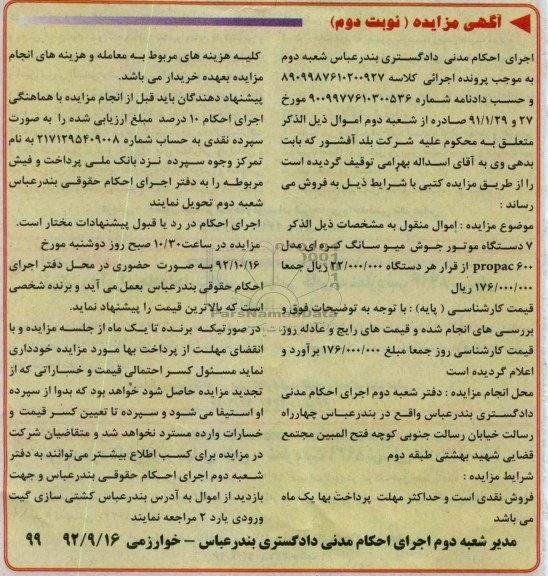 آگهی مزایده ( نوبت دوم)
اجرای احکام مدنی دادگستری بندرعباس شعبه دوم
به موجب پرونده اجرائی کلاسه ۸۹۰۹۹۸۷۶۱۰۲۰۰۹۲۷
و حسب دادنامه شماره ۹۰۰۹۹۷۷۶۱۰۳۰۰۵۳۶ مورخ
۹۱/۱/۲۹ و ۲۷ صادره از شعبه دوم اموال ذیل الذکر
متعلق به محکوم علیه شرکت بلد آفشور که بابت
بدهی وی به آقای اسداله بهرامی توقیف گردیده است
را از طریق مزایده کتبی با شرایط ذیل به فروش می
رساند :
موضوع مزایده : اموال منقول به مشخصات ذیل الذکر
۷ دستگاه موتور جوش میو سانگ کره ای مدل
propac ۶۰۰ از قرار هر دستگاه ۲۲/۰۰۰/۰۰۰ ریال جمعا
۱۷۶/۰۰۰/۰۰۰ ریال
قیمت کارشناسی ( پایه) : با توجه به توضیحات فوق و
بررسی های انجام شده و قیمت های رایج و عادله روز
قیمت کارشناسی روز جمعا مبلغ ۱۷۶/۰۰۰/۰۰۰ برآورد و
اعلام گردیده است
محل انجام مزایده : دفتر شعبه دوم اجرای احکام مدنی
دادگستری بندرعباس واقع در بندرعباس چهارراه
رسالت خیابان رسالت جنوبی کوچه فتح المبین مجتمع
قضایی شهید بهشتی طبقه دوم
شرایط مزایده :
فروش نقدی است و حداکثر مهلت پرداخت بها یک ماه
می باشد
کلیه هزینه های مربوط به معامله و هزینه های انجام
مزایده بعهده خریدار می باشد.
پیشنهاد دهندگان باید قبل از انجام مزایده با هماهنگی
اجرای احکام ۱۰ درصد مبلغ ارزیابی شده را به صورت
سپرده نقدی به حساب شماره ۲۱۷۱۲۹۵۴۰۹۰۰۸ به نام
تمرکز وجوه سپرده نزد بانک ملی پرداخت و فیش
مربوطه را به دفتر اجرای احکام حقوقی بندرعباس
شعبه دوم تحویل نمایند
اجرای احکام در رد یا قبول پیشنهادات مختار است.
مزایده در ساعت ۱۰/۳۰ صبح روز دوشنبه مورخ
۹۲/۱۰/۱۶ به صورت حضوری در محل دفتر اجرای
احکام حقوقی بندرعباس بعمل می آید و برنده شخصی
است که بالاترین قیمت را پیشنهاد نماید.
در صورتیکه برنده تا یک ماه از جلسه مزایده و با
انقضای مهلت از پرداخت بها مورد مزایده خودداری
نماید مسئول کسر احتمالی قیمت و خساراتی که از
تجدید مزایده حاصل شود خواهد بود که بدوا از سپرده
او استیفا می شود و سپرده تا تعیین کسر قیمت و
خسارات وارده مسترد نخواهد شد و متقاضیان شرکت
در مزایده برای کسب اطلاع بیشتر می توانند به دفتر
شعبه دوم اجرای احکام حقوقی بندرعباس و جهت
بازدید از اموال به آدرس بندرعباس کشتی سازی گیت
ورودی یارد ۲ مراجعه نمایند
مدیر شعبه دوم اجرای احکام مدنی دادگستری بندرعباس – خوارزمی ۹۲/۹/۱۶ ۹۹
ParsNamadData